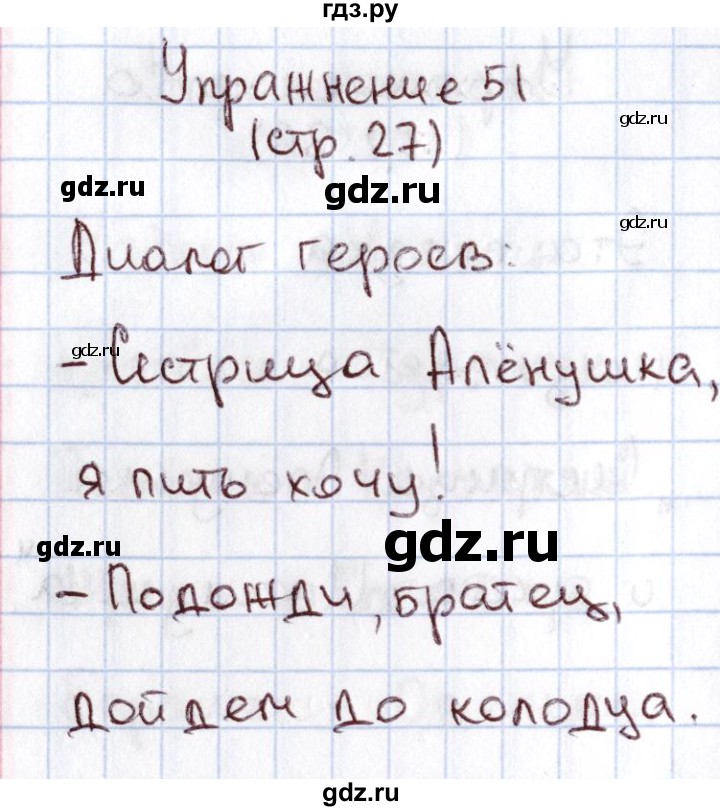 гдз.ру
Упражнение 51
gdz.ru
(стр. 27)
gdz.ru
gdz.ru
gdz.ru
Диалог героев:
gdz.ru
- Сестрица Алёнушка,
я пить хочу!
gdz.ru
gdz.ru
- Подожди, братец,
дойдем до колодца.
gdz.ru